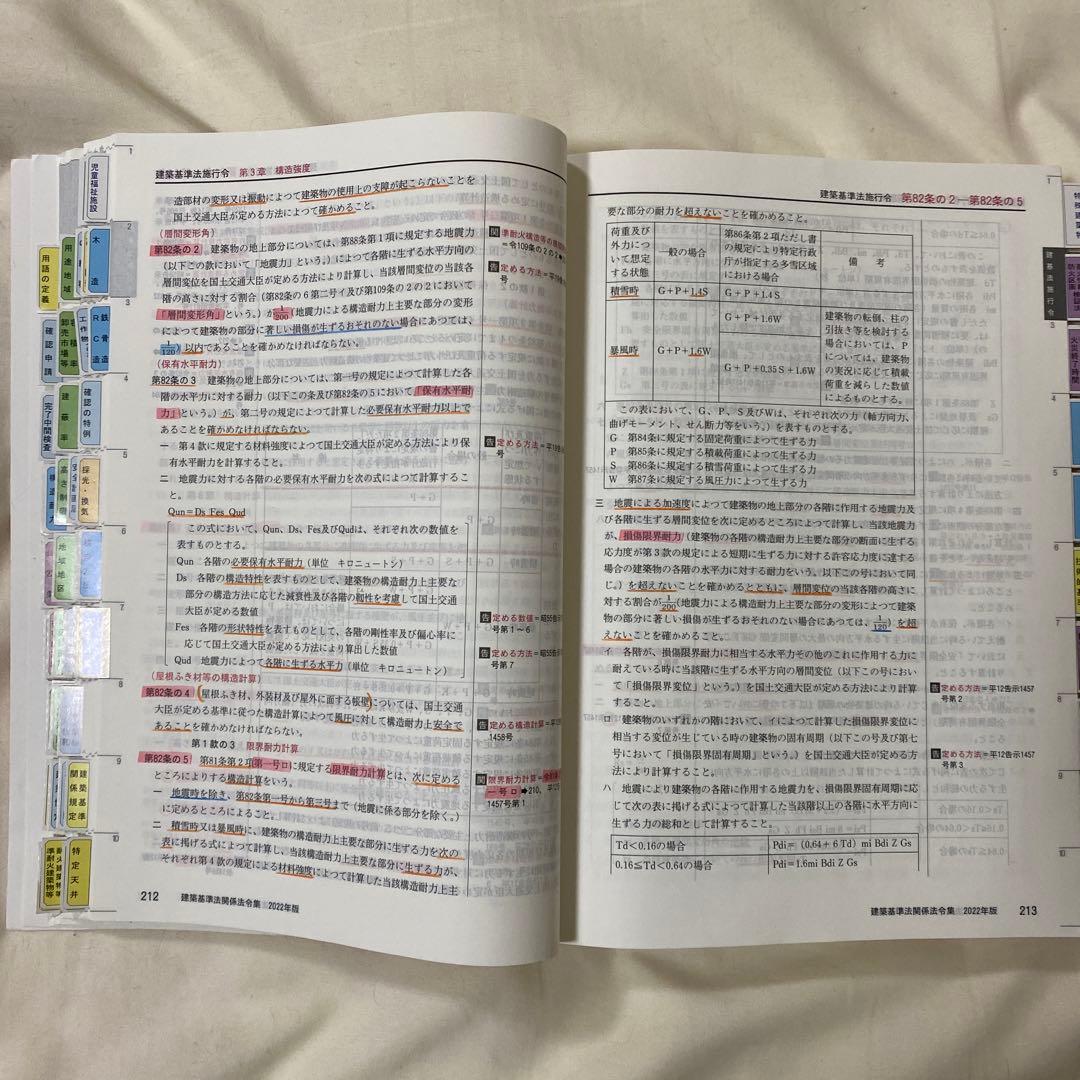 建築基準法施行令 第3章 構造強度
造部材の変形又は振動によつて建築物の使用上の支障が起こらないことを
国土交通大臣が定める方法によつて確かめること。
(層間変形角)
第82条の2 建築物の地上部分については、第88条第1項に規定する地震力
(以下この款において「地震力」という。)によつて各階に生ずる水平方向の
層間変位を国土交通大臣が定める方法により計算し、当該層間変位の当該各
階の高さに対する割合(第82条の6第二号イ及び第109条の2の2において
「層間変形角」という。)が1/200(地震力による構造耐力上主要な部分の変形
によつて建築物の部分に著しい損傷が生ずるおそれのない場合にあつては、
1/120)以内であることを確かめなければならない。
(保有水平耐力)
第82条の3 建築物の地上部分については、第一号の規定によつて計算した各
階の水平力に対する耐力(以下この条及び第82条の5において「保有水平耐
力」という。)が、第二号の規定によつて計算した必要保有水平耐力以上で
あることを確かめなければならない。
一 第4款に規定する材料強度によつて国土交通大臣が定める方法により保
有水平耐力を計算すること。
二 地震力に対する各階の必要保有水平耐力を次の式によつて計算するこ
と。
Qun=Ds Fes Qud
この式において、Qun、Ds、Fes及びQudは、それぞれ次の数値を
表すものとする。
Qun 各階の必要保有水平耐力(単位 キロニュートン)
Ds 各階の構造特性を表すものとして、建築物の構造耐力上主要な
部分の構造方法に応じた減衰性及び各階の靱性を考慮して国土交通
大臣が定める数値
Fes 各階の形状特性を表すものとして、各階の剛性率及び偏心率に
応じて国土交通大臣が定める方法により算出した数値
Qud 地震力によつて各階に生ずる水平力(単位 キロニュートン)
(屋根ふき材等の構造計算)
第82条の4 (屋根ふき材、外装材及び屋外に面する帳壁)については、国土交通
大臣が定める基準に従つた構造計算によつて風圧に対して構造耐力上安全で
あることを確かめなければならない。
第1款の3 限界耐力計算
第82条の5 第81条第2項第一号ロに規定する限界耐力計算とは、次に定める
ところによりする構造計算をいう。
一 地震時を除き、第82条第一号から第三号まで(地震に係る部分を除く。)
に定めるところによること。
二 積雪時又は暴風時に、建築物の構造耐力上主要な部分に生ずる力を次の
表に掲げる式によつて計算し、当該構造耐力上主要な部分に生ずる力が、
それぞれ第4款の規定による材料強度によつて計算した当該構造耐力上主
212 建築基準法関係法令集 2022年版
関 準耐火構造等の層間
=令109条の2の2
告 定める方法=平
号
告 定める方法=平
号
告 定める数値=昭55告
号第1~6
告 定める方法=昭55告
号第7
告 定める構造計算=平
1458号
関 限界耐力計算=
一号ロ➡210、平12
1457号第1
児童福祉施設
木造
用途地域
用語の定義
鉄骨造
RC造
工作物
容積率
卸売市場等
確認申請
確認の特例
建蔽率
完了中間検査
採光・換気
高さ制限
構造耐力
地域地区
建築基準関係規定
特定天井
耐火建築物等
準耐火建築物等
1
2
4
5
6
7
8
9
10
建築基準法施行令 第82条の2―第82条の5
要な部分の耐力を超えないことを確かめること。
荷重及び外力について想定する状態 一般の場合 第86条第2項ただし書の規定により特定行政庁が指定する多雪区域における場合 備考
積雪時 G+P+1.4S G+P+1.4S
暴風時 G+P+1.6W G+P+1.6W 建築物の転倒、柱の引抜き等を検討する場合においては、Pについては、建築物の実況に応じて積載荷重を減らした数値によるものとする。
G+P+0.35S+1.6W
この表において、G、P、S及びWは、それぞれ次の力(軸方向力、
曲げモーメント、せん断力等をいう。)を表すものとする。
G 第84条に規定する固定荷重によつて生ずる力
P 第85条に規定する積載荷重によつて生ずる力
S 第86条に規定する積雪荷重によつて生ずる力
W 第87条に規定する風圧力によつて生ずる力
三 地震による加速度によつて建築物の地上部分の各階に作用する地震力及
び各階に生ずる層間変位を次に定めるところによつて計算し、当該地震力
が、損傷限界耐力(建築物の各階の構造耐力上主要な部分の断面に生ずる
応力度が第3款の規定による短期に生ずる力に対する許容応力度に達する
場合の建築物の各階の水平力に対する耐力をいう。以下この号において同
じ。)を超えないことを確かめるとともに、層間変位の当該各階の高さに
対する割合が1/200(地震力による構造耐力上主要な部分の変形によつて建築
物の部分に著しい損傷が生ずるおそれのない場合にあつては、1/120)を超
えないことを確かめること。
イ 各階が、損傷限界耐力に相当する水平力その他のこれに作用する力に
耐えている時に当該階に生ずる水平方向の層間変位(以下この号におい
て「損傷限界変位」という。)を国土交通大臣が定める方法により計算
すること。
ロ 建築物のいずれかの階において、イによつて計算した損傷限界変位に
相当する変位が生じている時の建築物の固有周期(以下この号及び第七
号において「損傷限界固有周期」という。)を国土交通大臣が定める方
法により計算すること。
ハ 地震により建築物の各階に作用する地震力を、損傷限界固有周期に応
じて次の表に掲げる式によつて計算した当該階以上の各階に水平方向に
生ずる力の総和として計算すること。
Td<0.16の場合 Pdi=(0.64+6 Td) mi Bdi Z Gs
0.16≦Td<0.64の場合 Pdi=1.6mi Bdi Z Gs
告 定める方法=平12告示1457
号第2
告 定める方法=平12告示1457
号第3
建築基準法関係法令集 2022年版 213
建基法施行令
特殊建築物
防火区画
火災終了時間
1
3
4
5
6
7
8
9
10